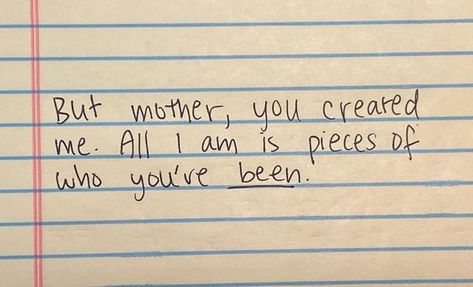 But mother, you created
me. All I am is pieces of
who you've been.